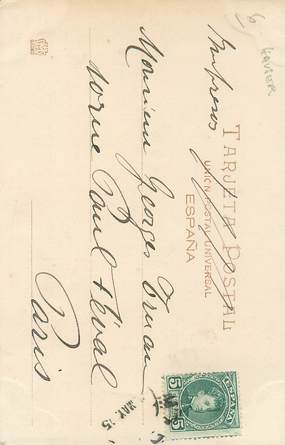 Impresos
TARJETA POSTAL
UNIÓN POSTAL UNIVERSAL
ESPAÑA
Monsieur Georges
10 rue Paul Féval
Paris
ESPAÑA
5 5
MAY 15